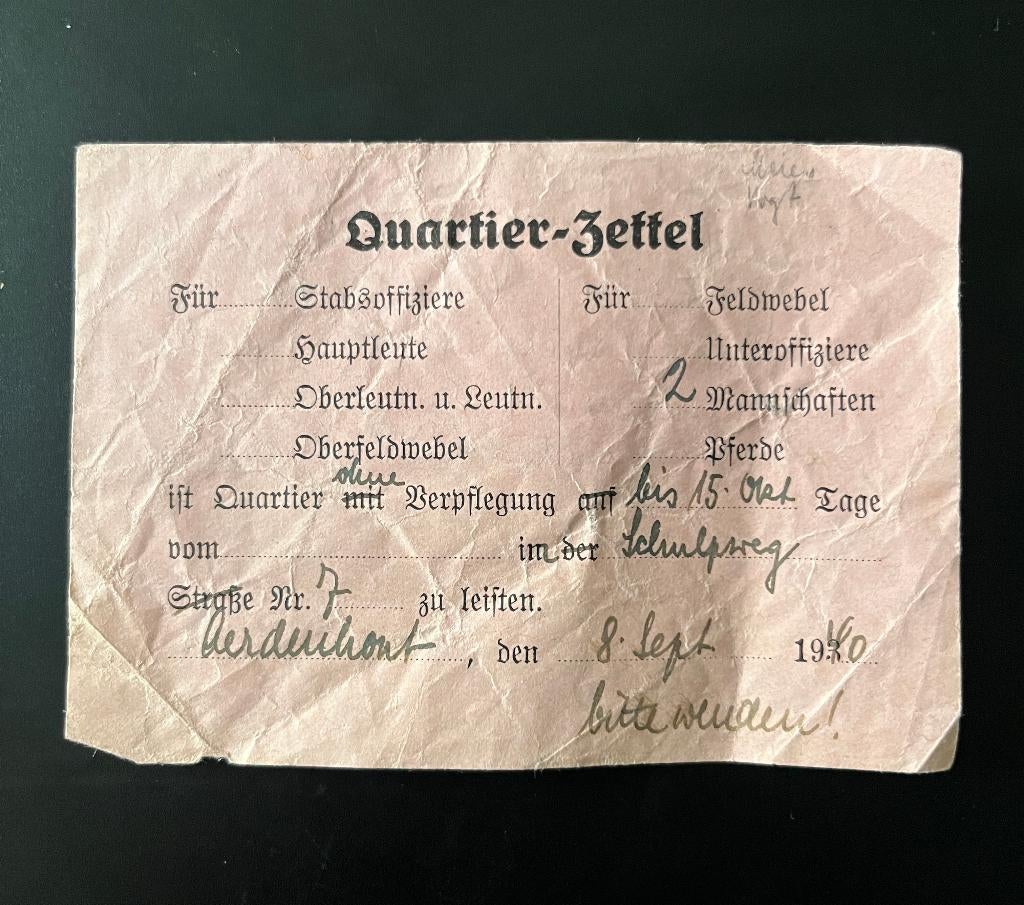 Quartier-Zettel
Für........Stabsoffiziere
........Hauptleute
........Oberleutn. u. Leutn.
........Oberfeldwebel
Für........Feldwebel
........Unteroffiziere
2 Mannschaften
........Pferde
ohne
ist Quartier mit Verpflegung auf bis 15. Okt Tage
vom........ in der Schulpweg
Straße Nr. 7 zu leisten.
Aerdenhout, den 8. Sept 1940
bitte wenden!